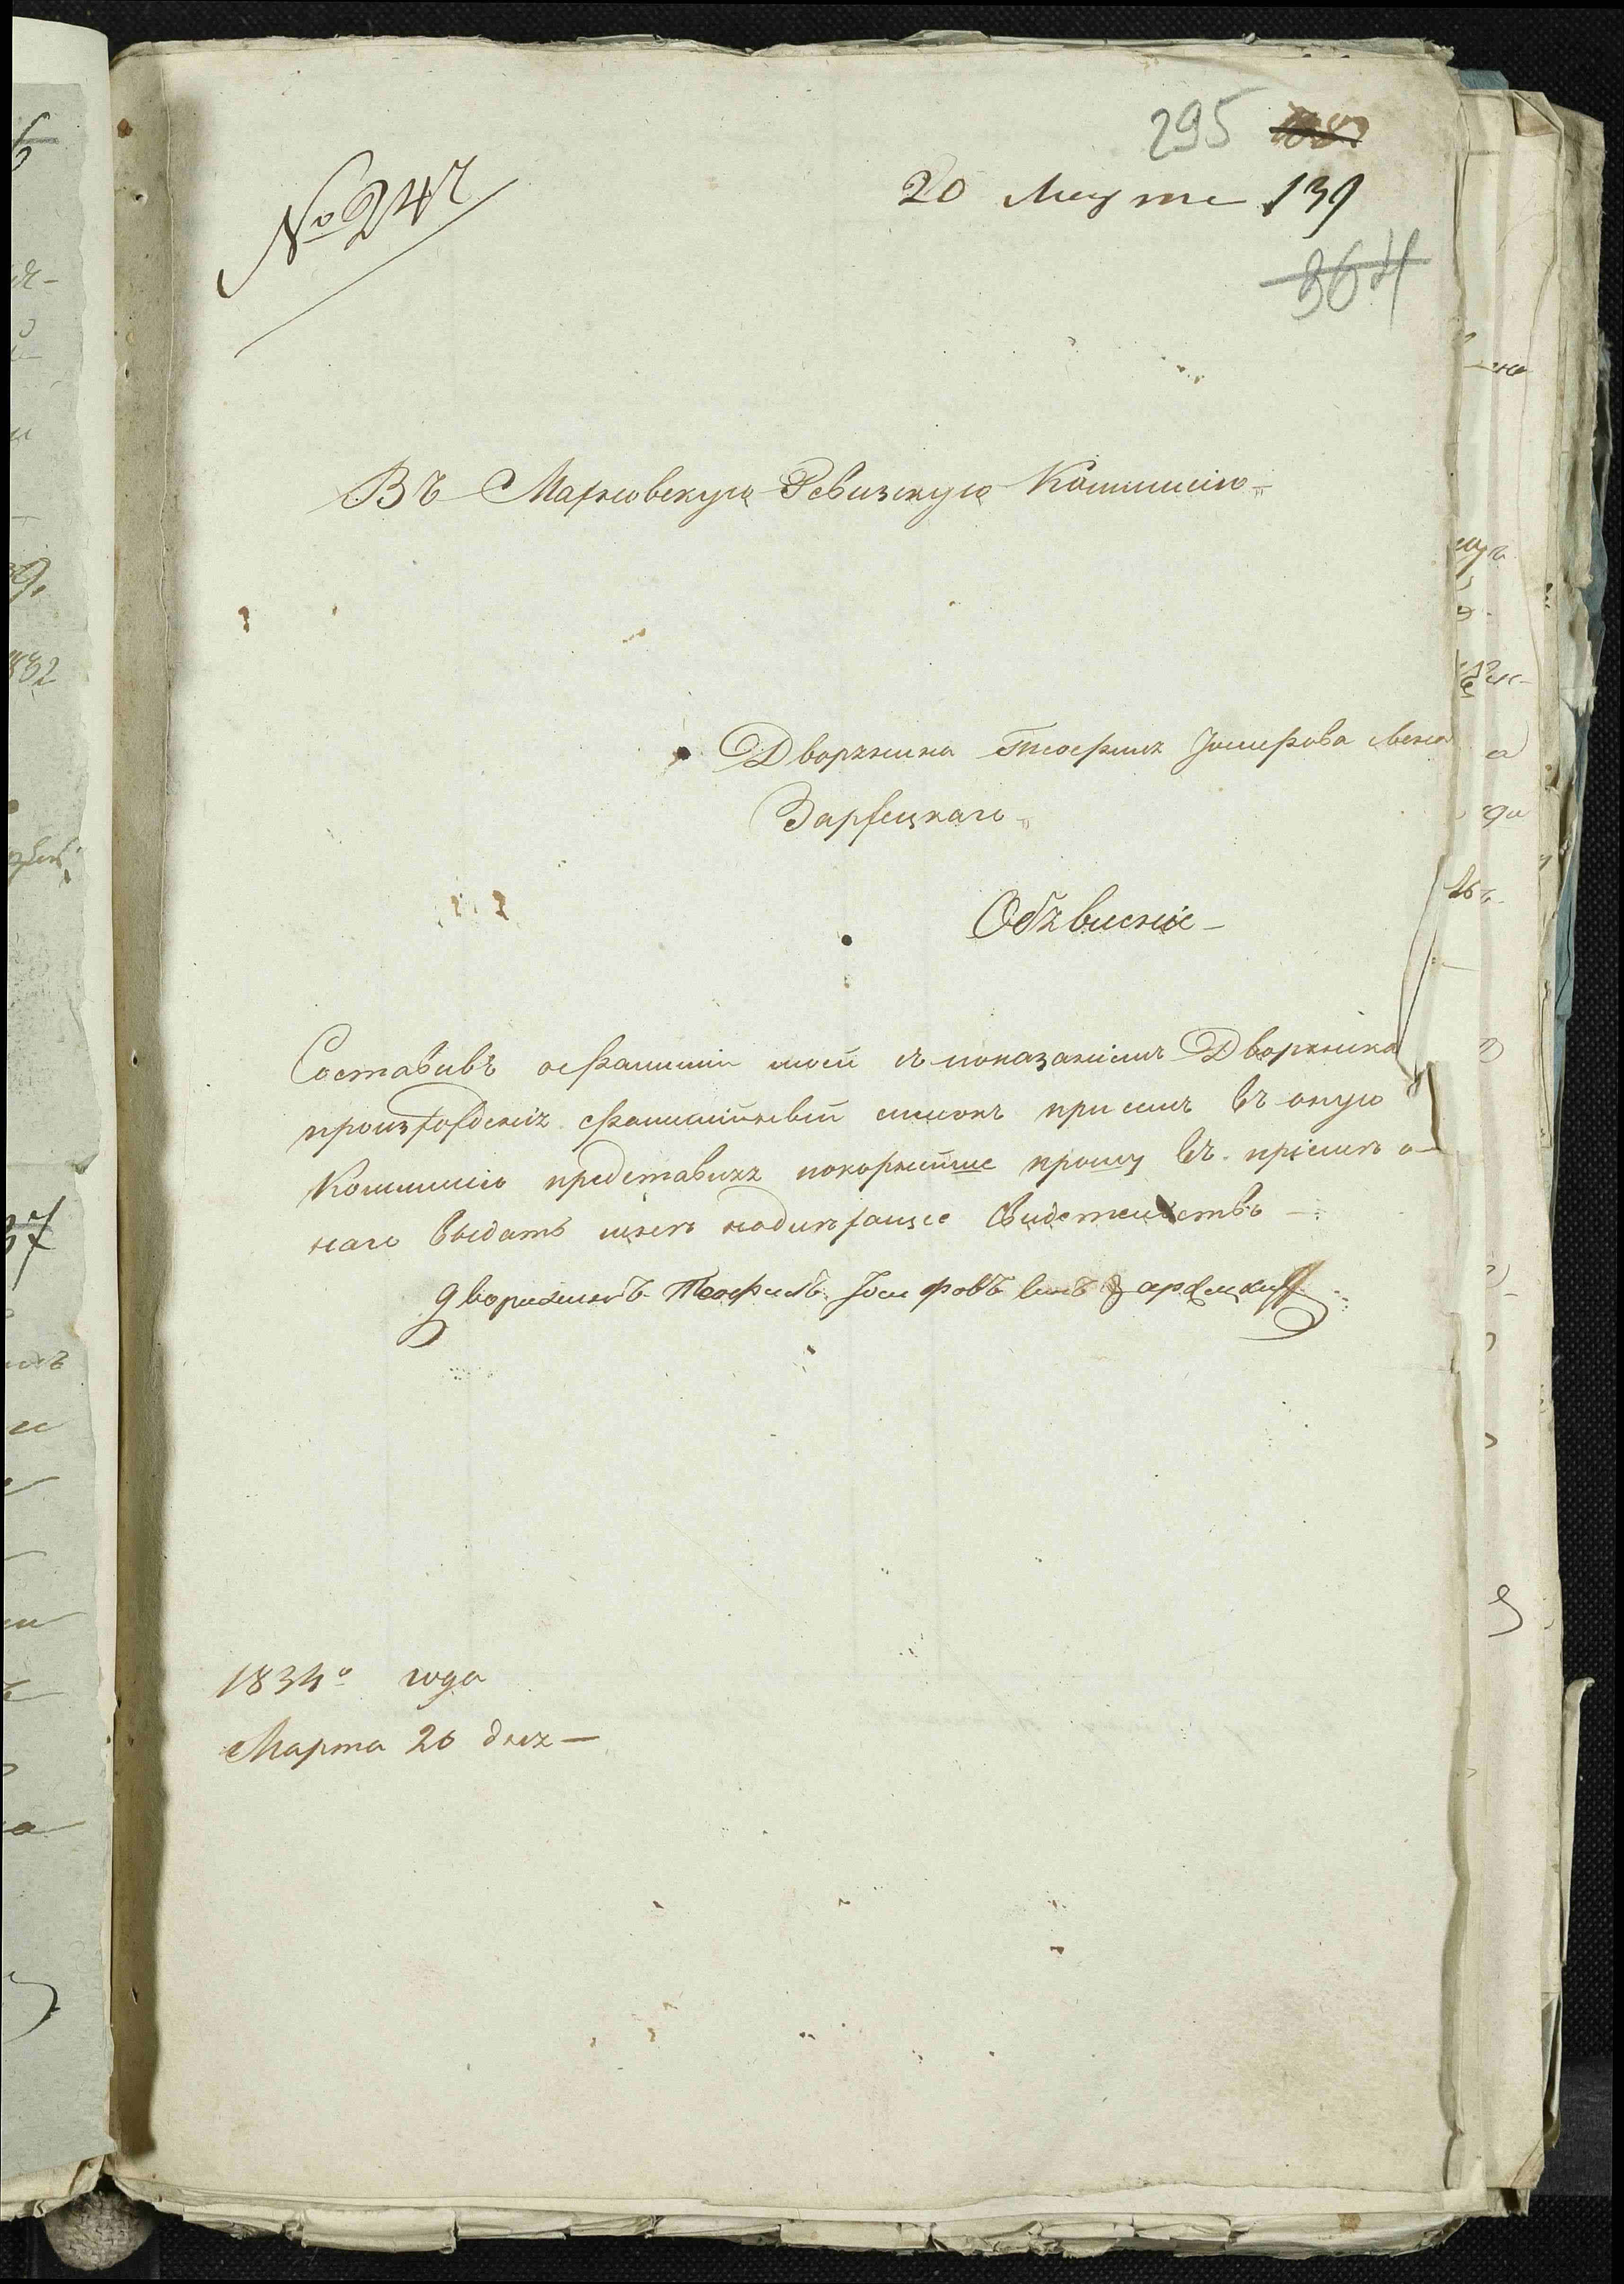 295
№ 247
20 Марта 139
364
Въ Махновскую Ревизскую Коммисію
Дворянина Теофиля Іосифова сына
Зарвецкаго
Обявленіе
Составивъ о фамиліи моей съ показаніемъ Дворянска
произхожденія фамилійный списокъ при семъ въ оную
Коммисію представляя покорнейше прошу въ пріеме о-
наго выдать мне надлежащее Свидетельство
дворянинъ Теофиль Іосифовъ сынъ Зарвецкій
1834º года
Марта 20 дня